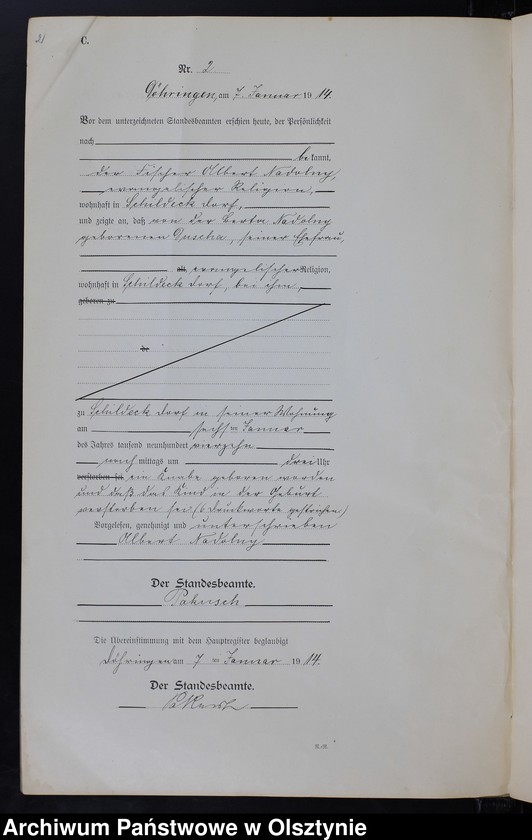 21
C.
Nr. 2
Döhringen, am 7. Januar 1914.
Vor dem unterzeichneten Standesbeamten erschien heute, der Persönlichkeit
nach
bekannt,
der Fischer Albert Nadolny,
evangelischer Religion,
wohnhaft in Schildeck Dorf,
und zeigte an, daß von der Berta Nadolny
geborenen Duscha, seiner Ehefrau,
alt, evangelischer Religion,
wohnhaft in Schildeck Dorf, bei ihm,
geboren zu
de
zu Schildeck Dorf in seiner Wohnung
am sechsten Januar
des Jahres tausend neunhundert vierzehn
nachmittags um drei Uhr
verstorben sei, ein Knabe geboren worden
und daß das Kind in der Geburt
verstorben sei (6 Druckworte gestrichen)
Vorgelesen, genehmigt und unterschrieben
Albert Nadolny
Der Standesbeamte.
Die Übereinstimmung mit dem Hauptregister beglaubigt
Döhringen am 7ten Januar 1914.
Der Standesbeamte.
Archiwum Państwowe w Olsztynie